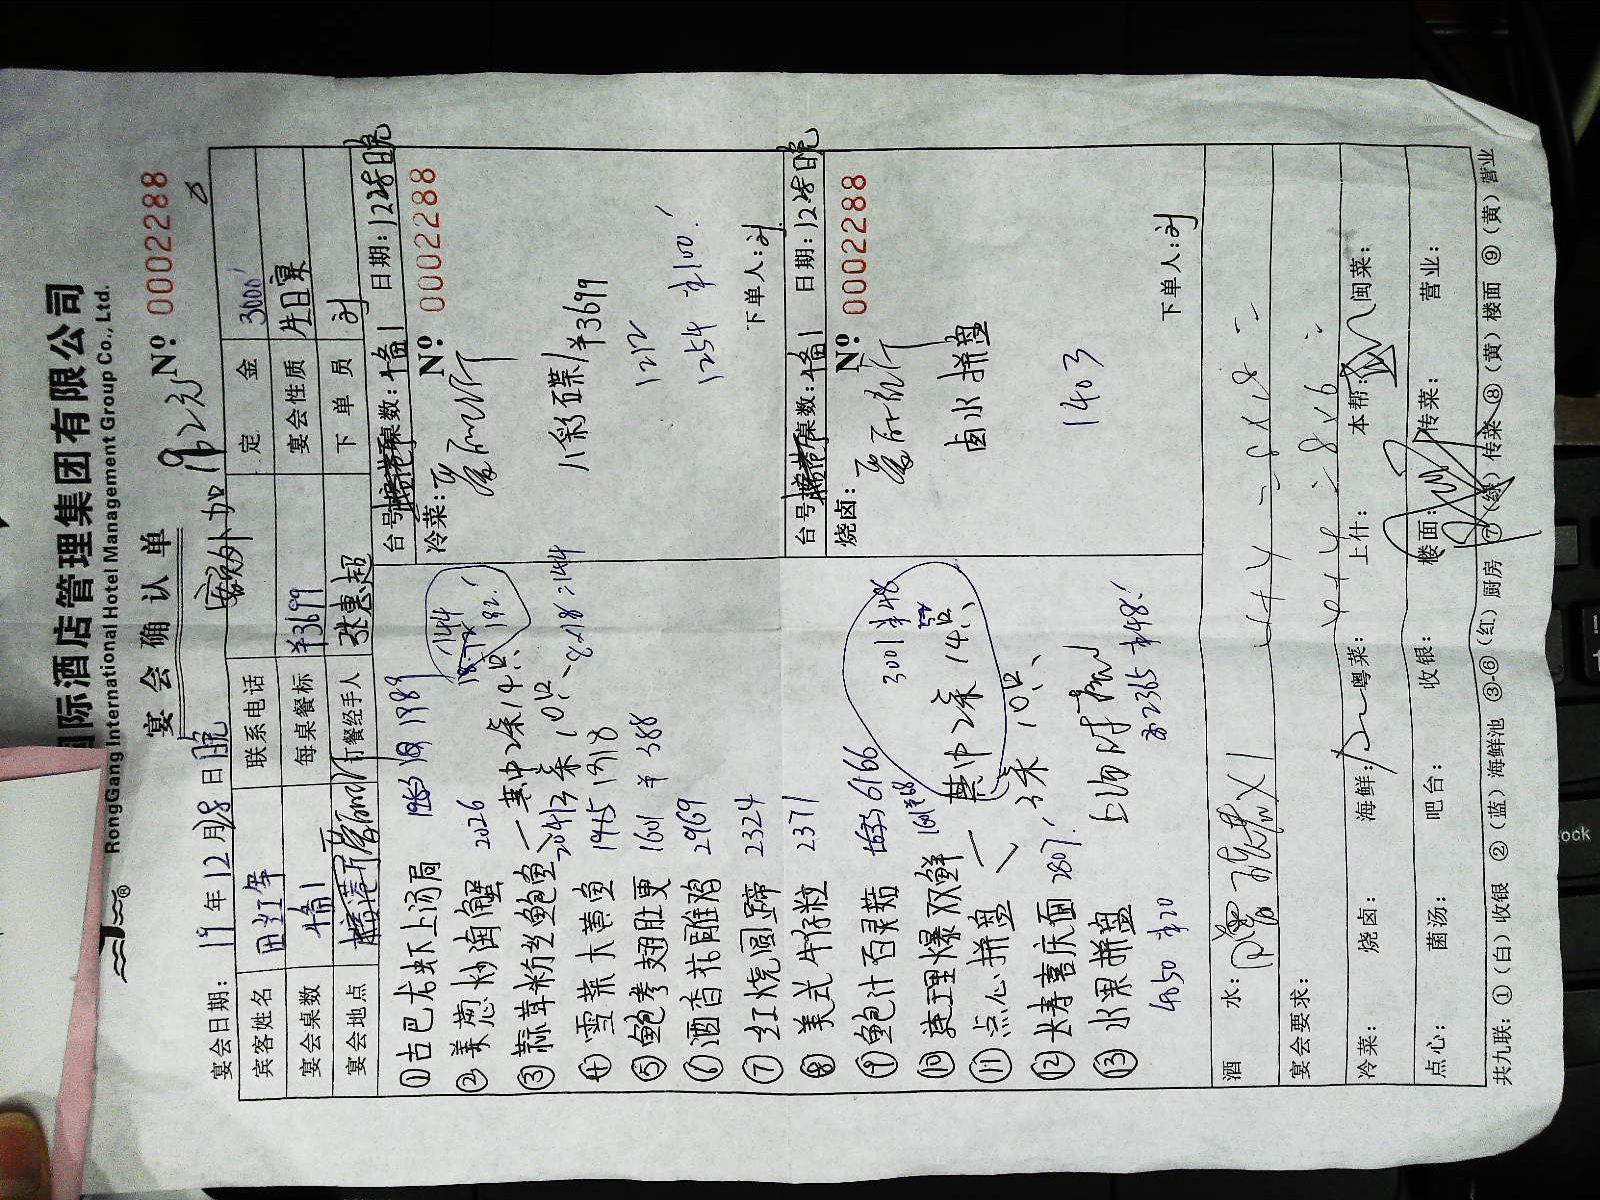 国际酒店管理集团有限公司
RongGang International Hotel Management Group Co., Ltd.
宴会确认单
№ 0002288
额外加192元
宴会日期: 19年12月28日晚
宾客姓名 田红军 联系电话 定金 3000
宴会桌数 1 每桌餐标 ¥3699 宴会性质 生日宴
宴会地点 订餐经手人 张惠超 下单员 刘
①古巴龙虾上汤局 1989
②姜葱炒海蟹 2026
③蒜茸粉丝鲍鱼 2041
其中2桌14只、
3桌10只、8×18=144
④雪菜大黄鱼 1945 1318
⑤鲍参翅肚更 1601 ¥388
⑥酒香花雕鸡 2969
⑦红烧圆蹄 2324
⑧美式牛仔粒 2371
⑨鲍汁百灵菇 6166
⑩莲理爆双鲜
⑪点心拼盘
其中2桌14只、
3桌10只、
3001 ¥48
⑫长寿喜庆面 2807
⑬水果拼盘 上汤时蔬
4050 ¥20 2365 ¥48
台号: 桌数: 1 日期: 1228晚
冷菜: № 0002288
八彩碟/¥3699
1212
1254 ¥100
下单人: 刘
台号: 桌数: 1 日期: 1228晚
烧卤: № 0002288
卤水拼盘
1403
下单人: 刘
酒水:
宴会要求:
冷菜: 烧卤: 海鲜: 粤菜: 上什: 本帮: 闽菜:
点心: 菌汤: 吧台: 收银: 楼面: 传菜: 营业:
共九联: ①(白)收银 ②(蓝)海鲜池 ③-⑥(红)厨房 ⑦(绿)传菜 ⑧(黄)楼面 ⑨(黄)营业